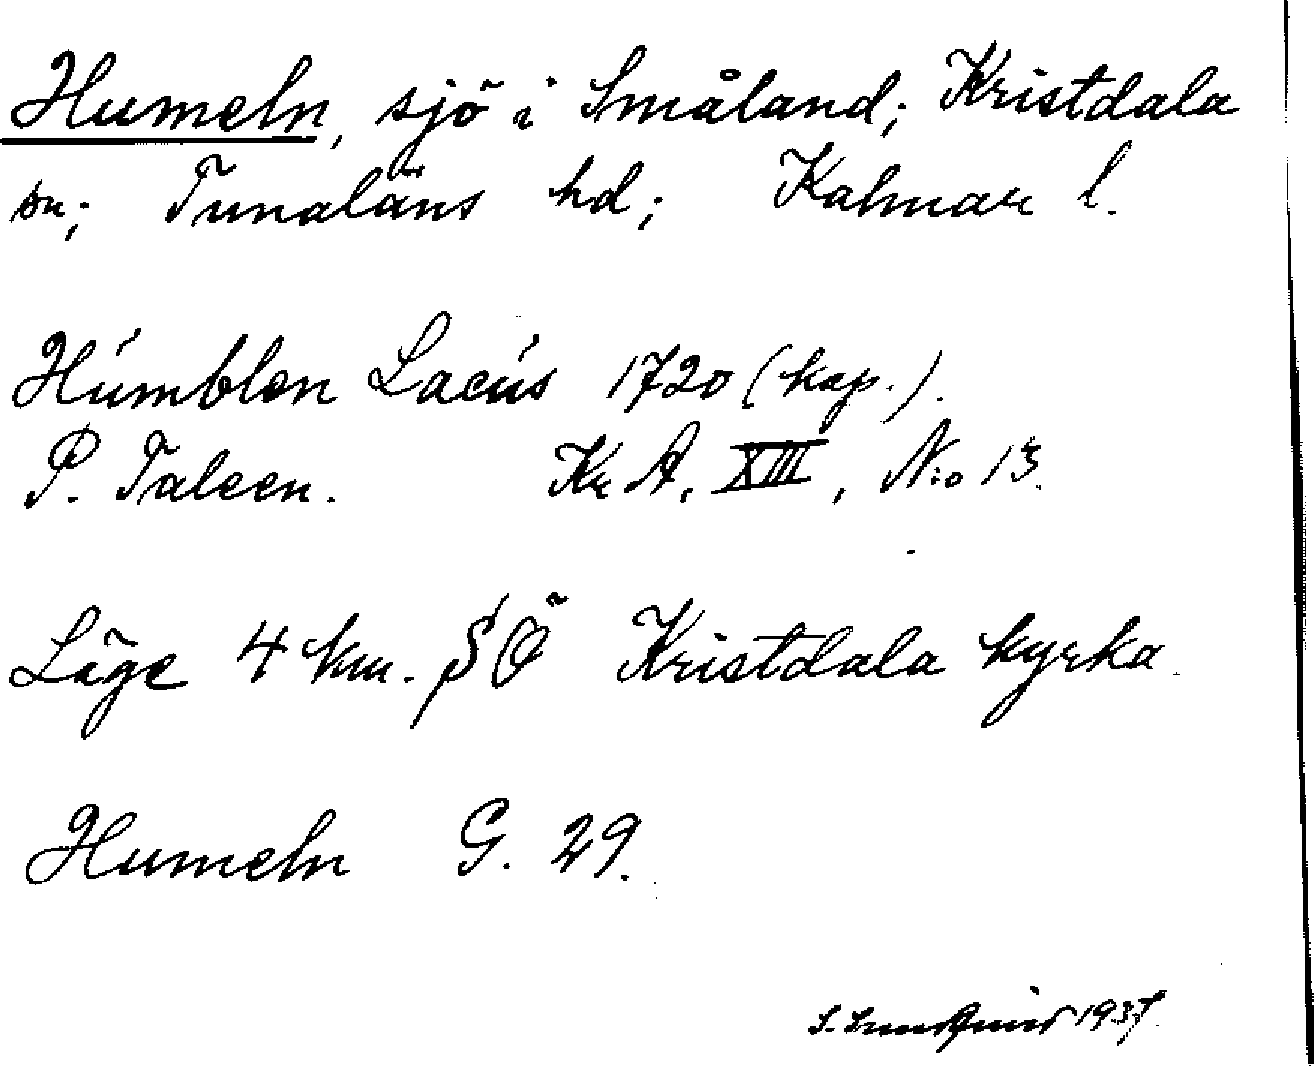 Humeln, sjö i Småland; Kristdala
sn; Tunaläns hd; Kalmar l.
Húmblen Lacús 1720 (kap.).
P. Taleen. Kr A, XIII, N:o 13.
Läge 4 km. SÖ Kristdala kyrka.
Humeln G. 29.
S. 1937.